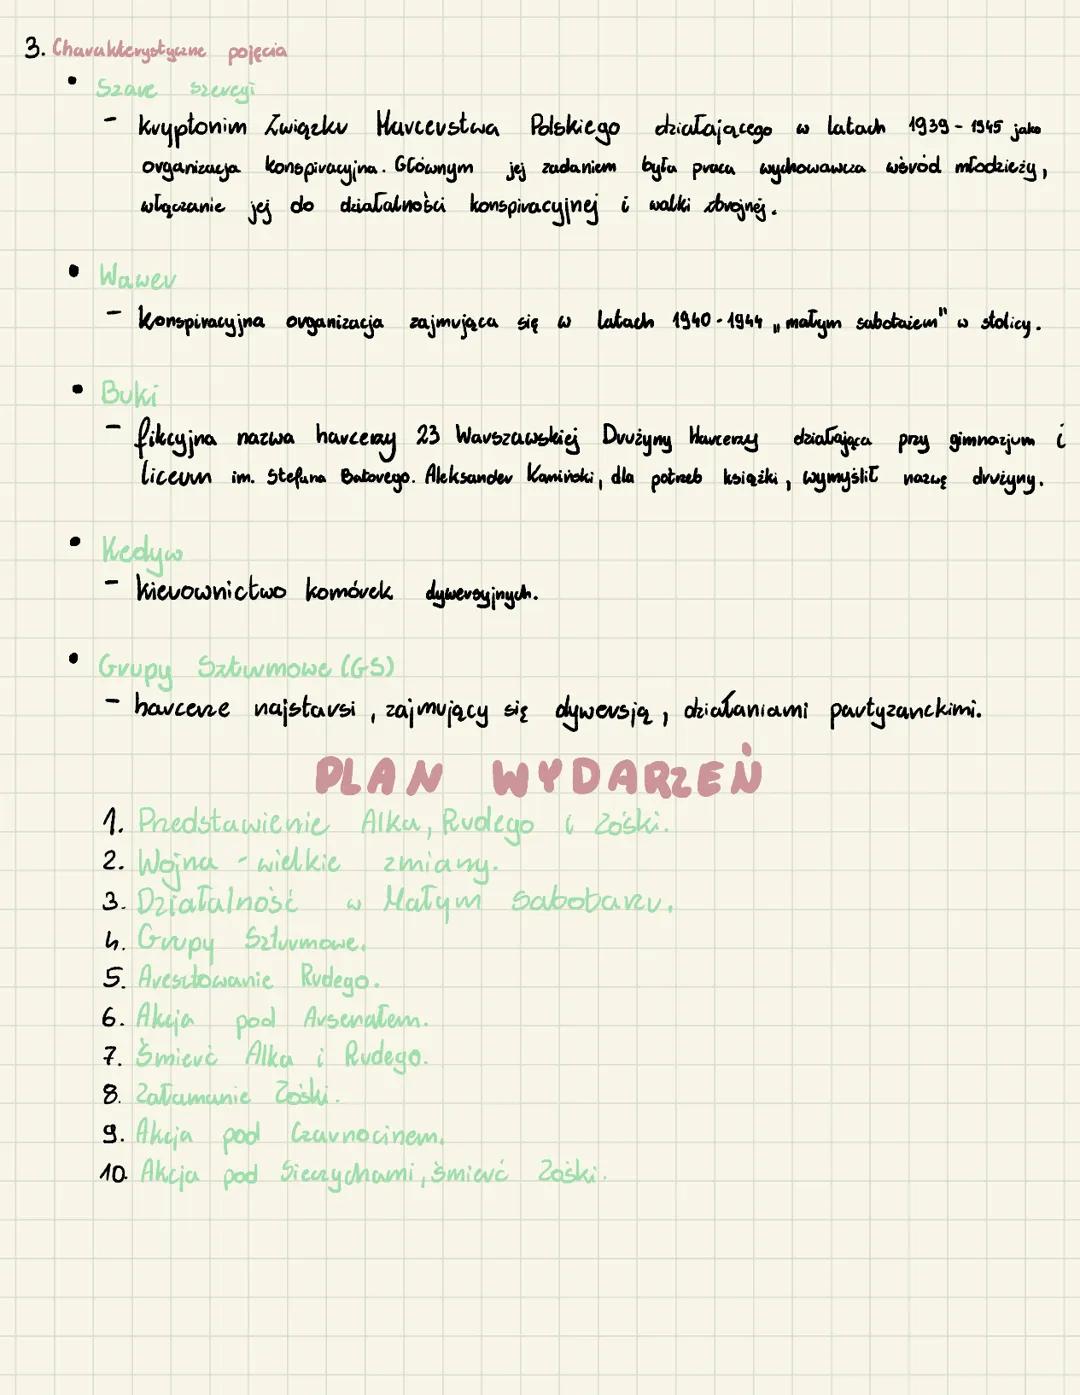 3. Charakterystyczne pojęcia
• Szare szeregi
- kryptonim Związku Harcerstwa Polskiego działającego w latach 1939-1945 jako
organizacja konspiracyjna. Głównym jej zadaniem była praca wychowawcza wśród młodzieży,
włączanie jej do działalności konspiracyjnej i walki zbrojnej.
• Wawer
- Konspiracyjna organizacja zajmująca się w latach 1940-1944 „małym sabotażem" w stolicy.
• Buki
- fikcyjna nazwa harcerzy 23 Warszawskiej Drużyny Harcerzy działająca przy gimnazjum i
liceum im. Stefana Batorego. Aleksander Kamiński, dla potrzeb książki, wymyślił nazwę drużyny.
• Kedyw
- kierownictwo komórek dywersyjnych.
• Grupy Szturmowe (GS)
- harcerze najstarsi, zajmujący się dywersją, działaniami partyzanckimi.
PLAN WYDARZEŃ
1. Przedstawienie Alka, Rudego i Zośki.
2. Wojna - wielkie zmiany.
3. Działalność w Małym sabotarzu.
4. Grupy Szturmowe.
5. Aresztowanie Rudego.
6. Akcja pod Arsenałem.
7. Śmierć Alka i Rudego.
8. Załamanie Zośki.
9. Akcja pod Czarnocinem.
10. Akcja pod Sieczychami, śmierć Zośki.